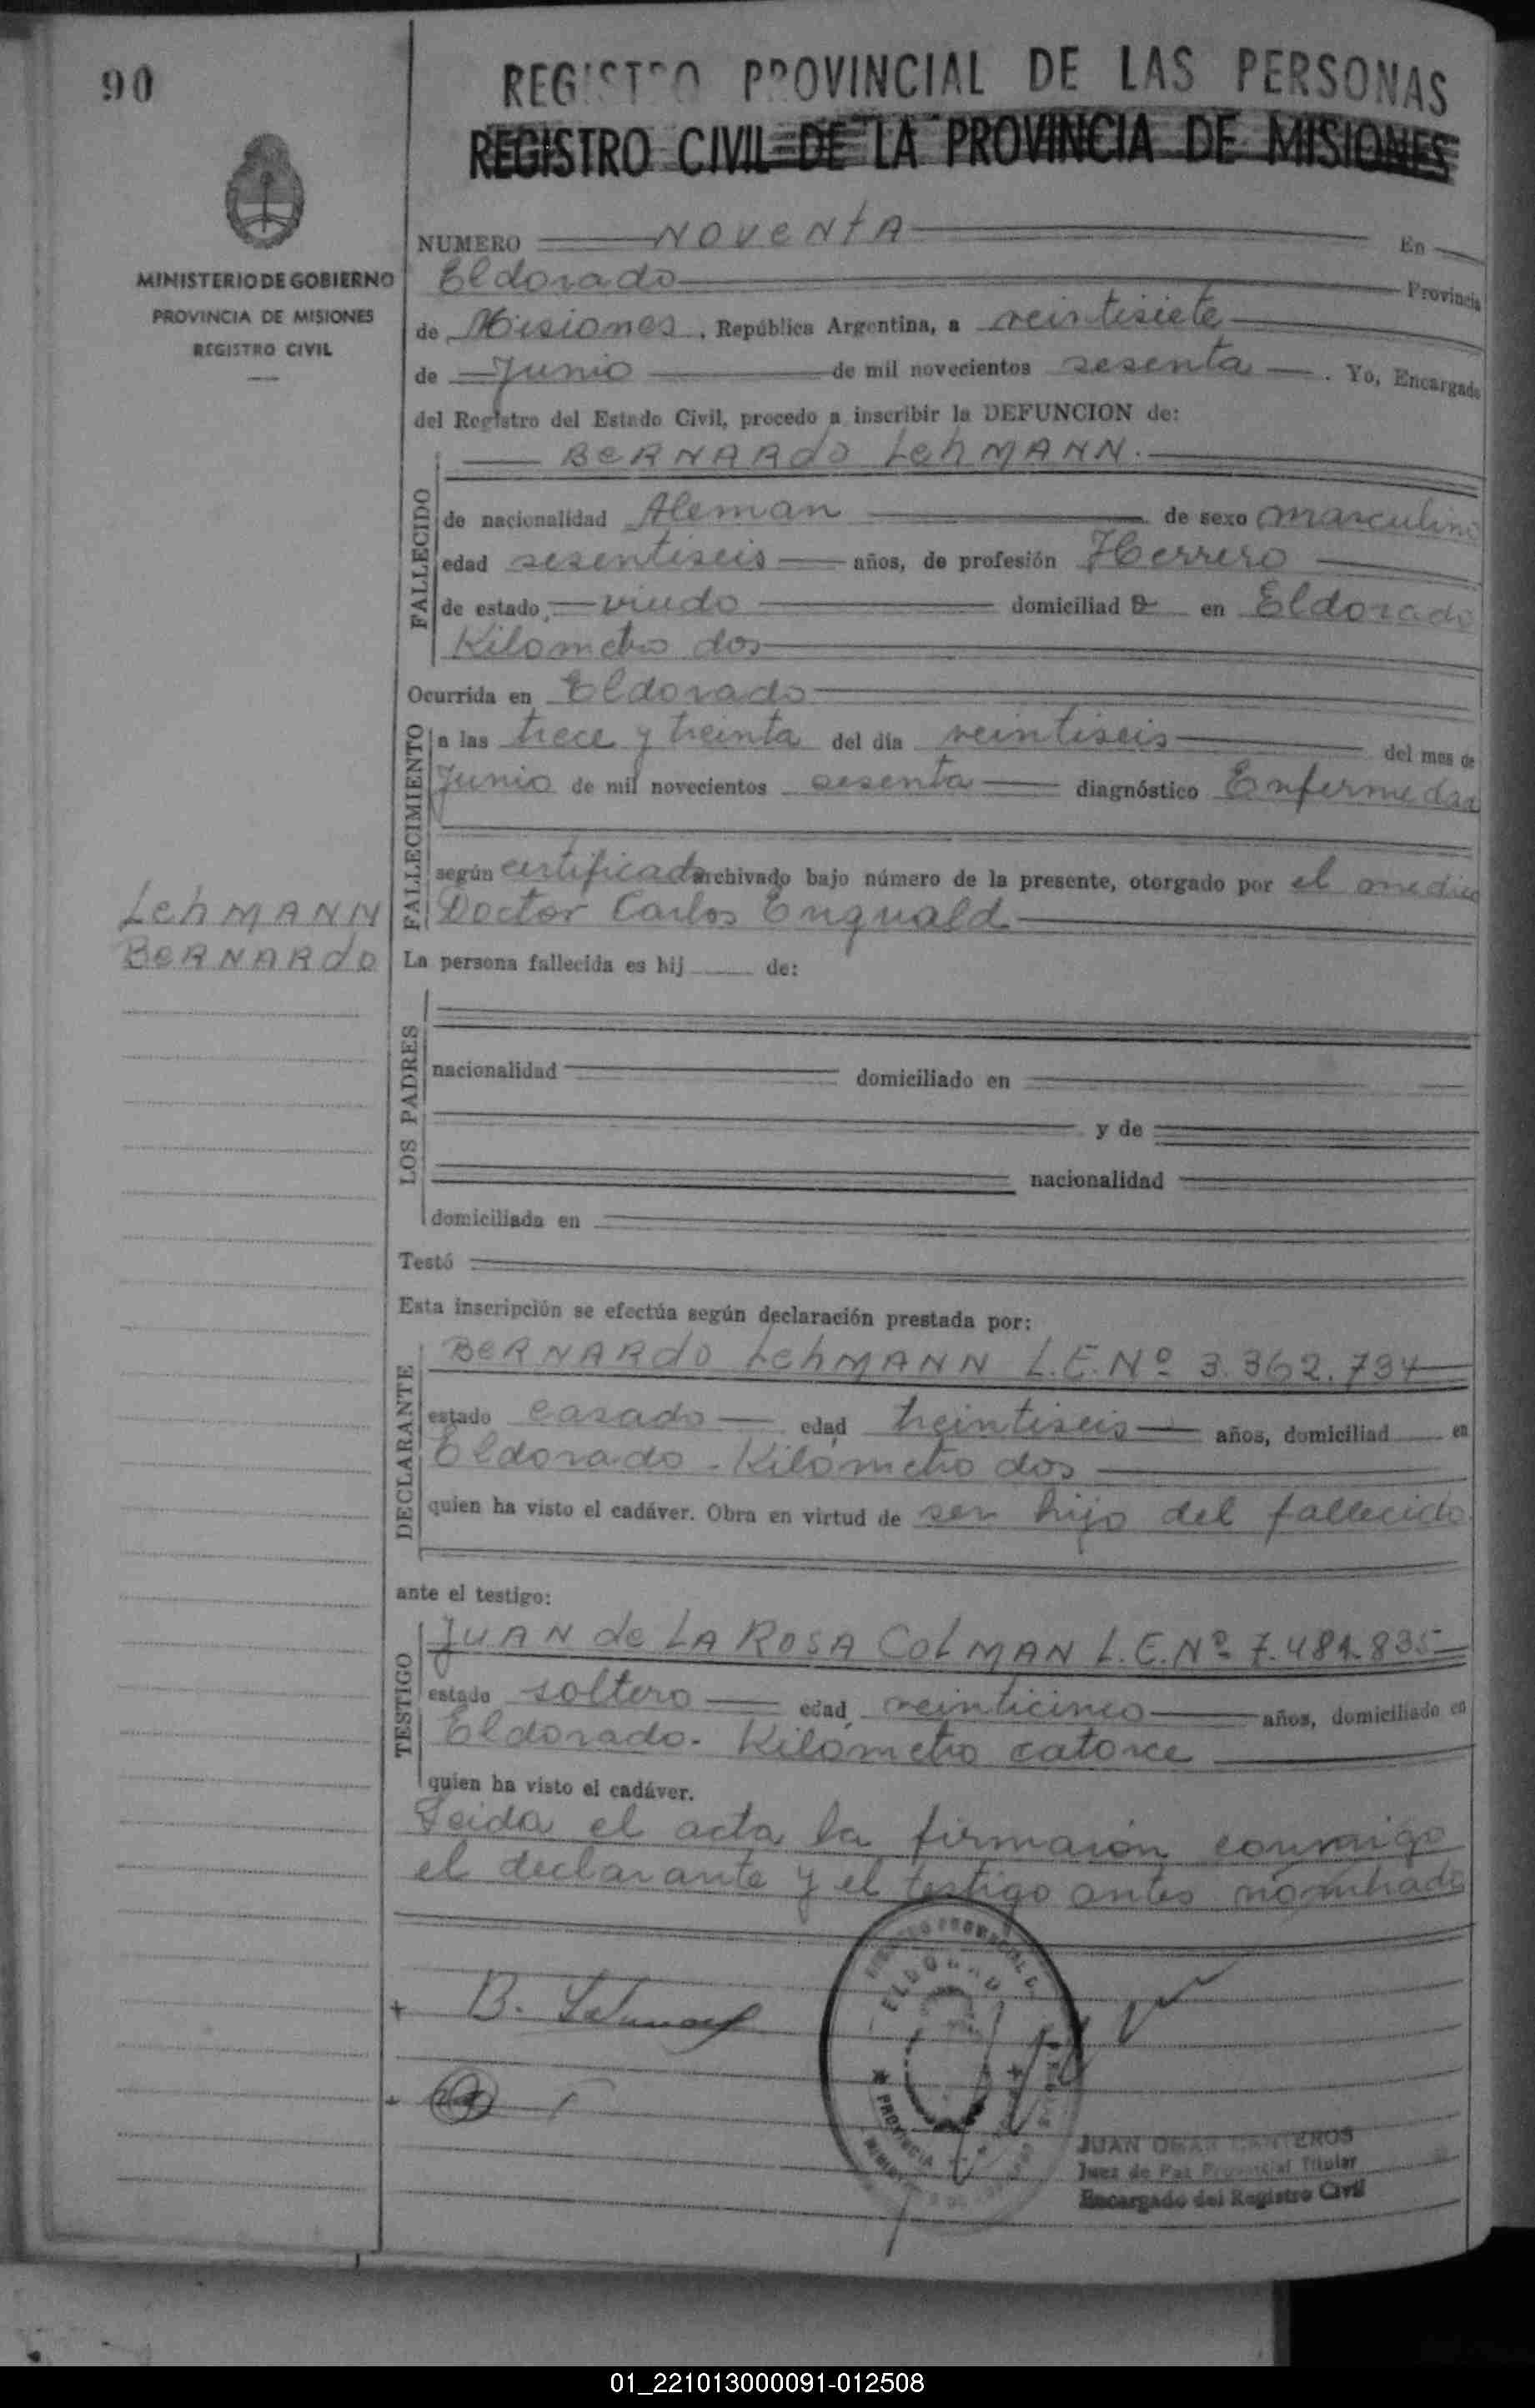 90
REGISTRO PROVINCIAL DE LAS PERSONAS
REGISTRO CIVIL DE LA PROVINCIA DE MISIONES
MINISTERIO DE GOBIERNO
PROVINCIA DE MISIONES
REGISTRO CIVIL
NUMERO NOVENTA En
Eldorado Provincia
de Misiones, República Argentina, a veintisiete
de Junio de mil novecientos sesenta. Yo, Encargado
del Registro del Estado Civil, procedo a inscribir la DEFUNCION de:
BERNARDO LEHMANN.
FALLECIDO
de nacionalidad Aleman de sexo masculino
edad sesentiseis años, de profesión Herrero
de estado, viudo domiciliad o en Eldorado
Kilometro dos
Ocurrida en Eldorado
FALLECIMIENTO
a las trece y treinta del día veintiseis del mes de
Junio de mil novecientos sesenta diagnóstico Enfermedad
según certificado archivado bajo número de la presente, otorgado por el medico
Doctor Carlos
LEHMANN
BERNARDO
La persona fallecida es hij de:
LOS PADRES
nacionalidad domiciliado en
y de
nacionalidad
domiciliada en
Testó
Esta inscripción se efectúa según declaración prestada por:
DECLARANTE
BERNARDO LEHMANN L.E.Nº 3.362.734
estado casado edad treintiseis años, domiciliad en
Eldorado - Kilómetro dos
quien ha visto el cadáver. Obra en virtud de ser hijo del fallecido
ante el testigo:
TESTIGO
JUAN de LA ROSA COLMAN L.E.Nº 7.481.835
estado soltero edad, veinticinco años, domiciliado en
Eldorado. Kilómetro catorce
quien ha visto el cadáver.
Leida el acta la firmaron conmigo
el declarante y el testigo antes nombrado
B. Lehmann
ELDORADO
PROVINCIA
JUAN OMAR
Juez de Paz Provincial Titular
Encargado del Registro Civil
01_221013000091-012508